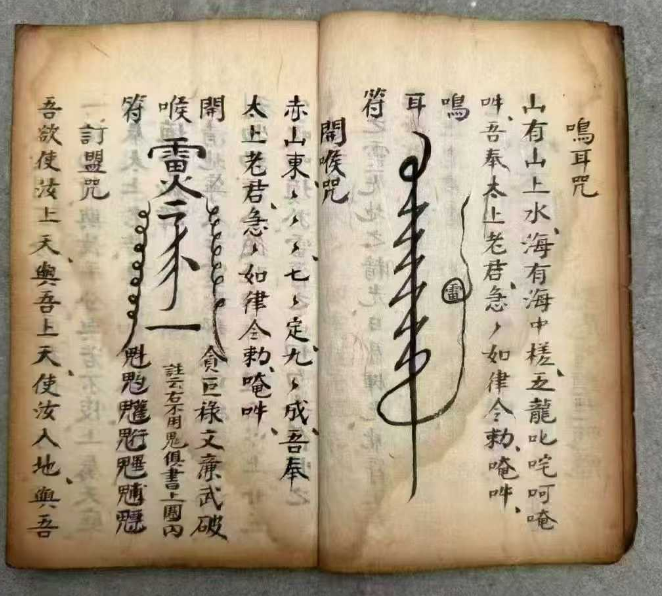 鳴耳咒
山有山上水、海有海中槎、五龍叱咤呵唵
吽、吾奉太上老君急〻如律令勅、唵吽、
鳴耳符
雷
開喉咒
赤山東〻〻〻七〻定九〻成、吾奉
太上老君急〻如律令勅、唵吽、
開喉符
雷火
貪巨祿文廉武破
註云右不用鬼俱書上圈內
魁
訂盟咒
吾欲使汝上天、與吾上天、使汝入地、與吾